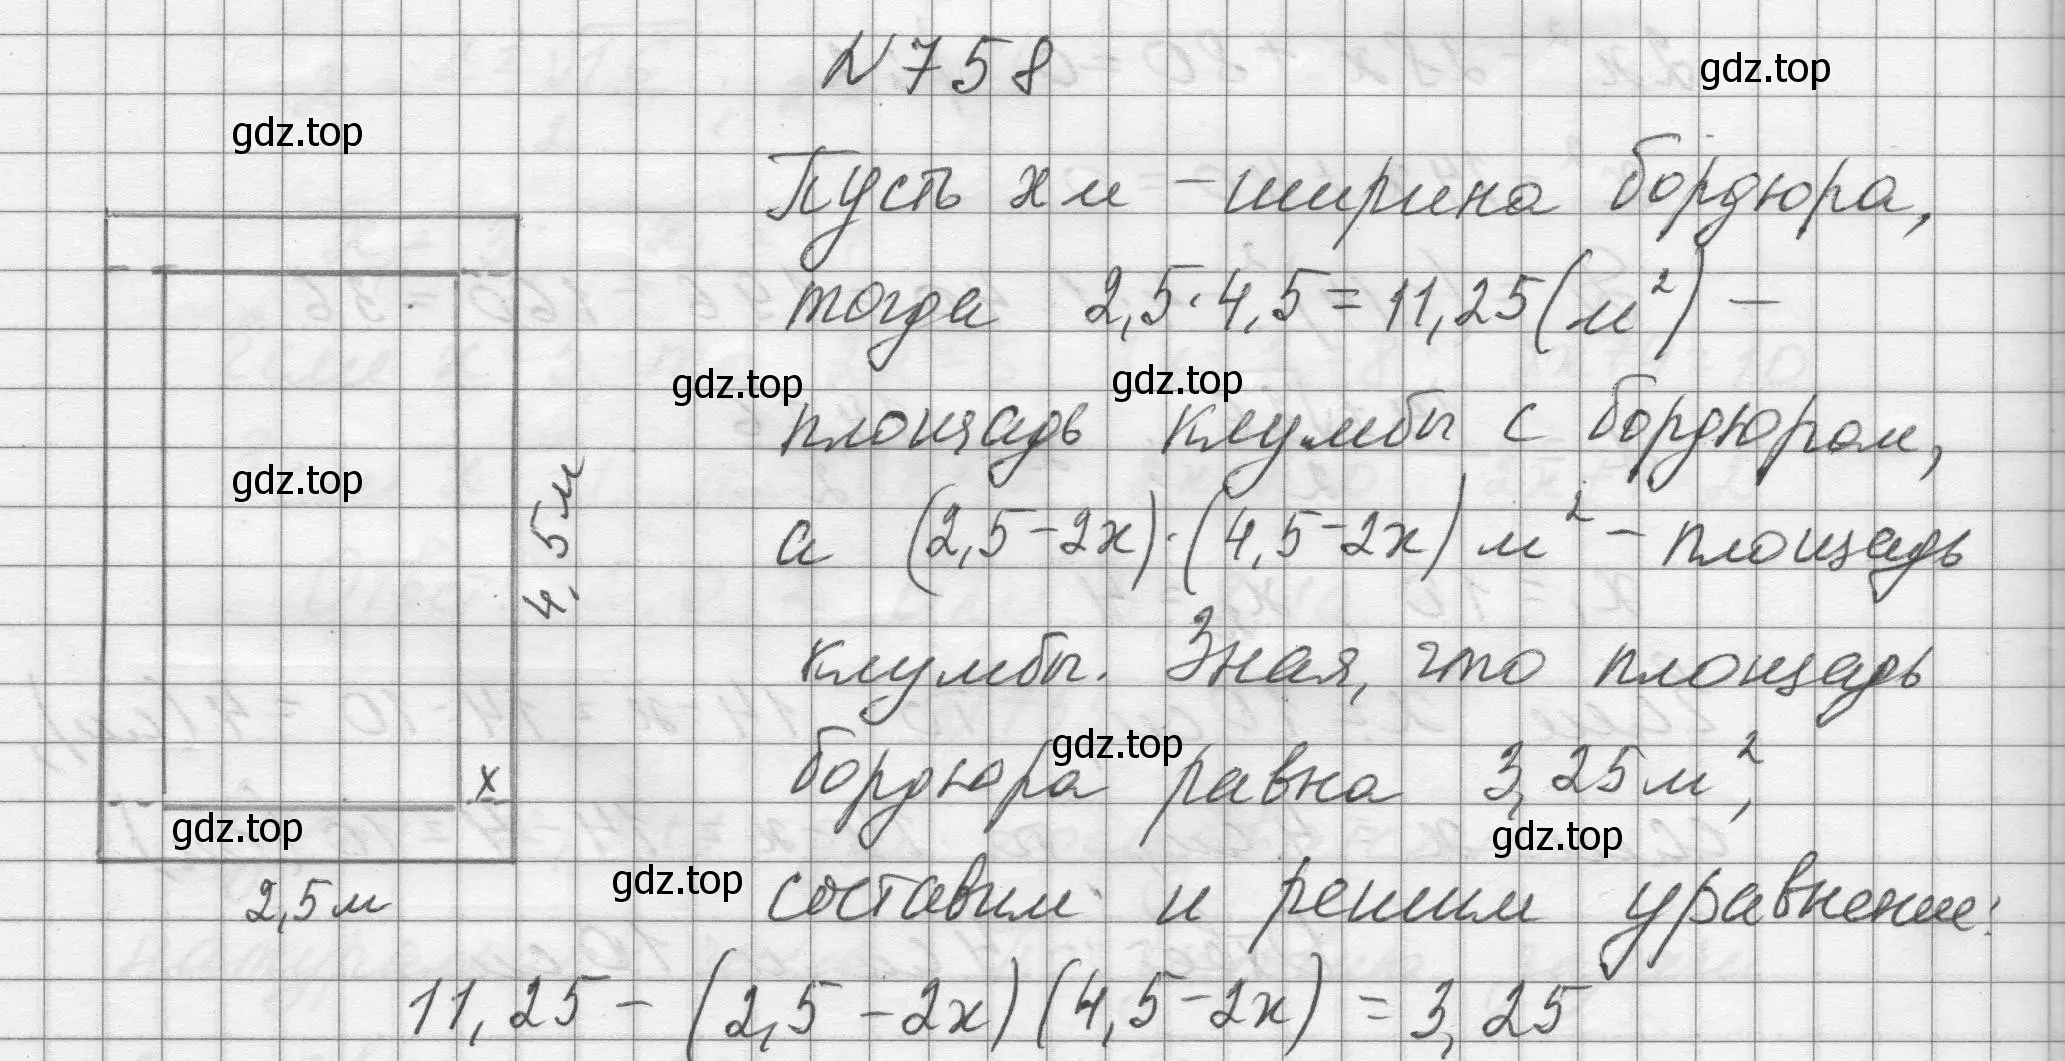 №758
gdz.top
gdz.top
Пусть x м – ширина бордюра,
тогда 2,5·4,5=11,25(м²) –
gdz.top gdz.top
площадь клумбы с бордюром,
gdz.top
4,5м
а (2,5-2x)·(4,5-2x) м² – площадь
клумбы. Зная, что площадь
gdz.top
бордюра равна 3,25м²,
x
gdz.top
gdz.top
gdz.top
2,5м
составим и решим уравнение:
11,25-(2,5-2x)(4,5-2x)=3,25